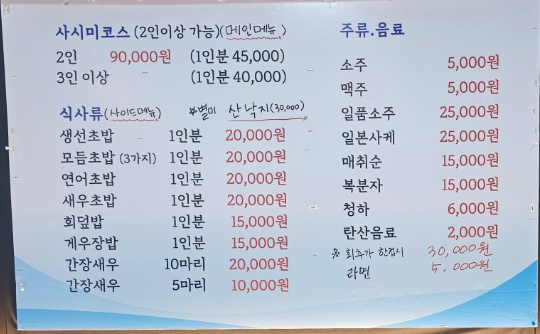 사시미코스 (2인이상 가능)(메인메뉴)
2인 90,000원 (1인분 45,000)
3인 이상 (1인분 40,000)
식사류(사이드메뉴) *별미 산낙지(30,000)
생선초밥 1인분 20,000원
모듬초밥 (3가지) 1인분 20,000원
연어초밥 1인분 20,000원
새우초밥 1인분 20,000원
회덮밥 1인분 15,000원
게우장밥 1인분 15,000원
간장새우 10마리 20,000원
간장새우 5마리 10,000원
주류.음료
소주 5,000원
맥주 5,000원
일품소주 25,000원
일본사케 25,000원
매취순 15,000원
복분자 15,000원
청하 6,000원
탄산음료 2,000원
※ 회추가 한접시 30,000원
라면 5,000원